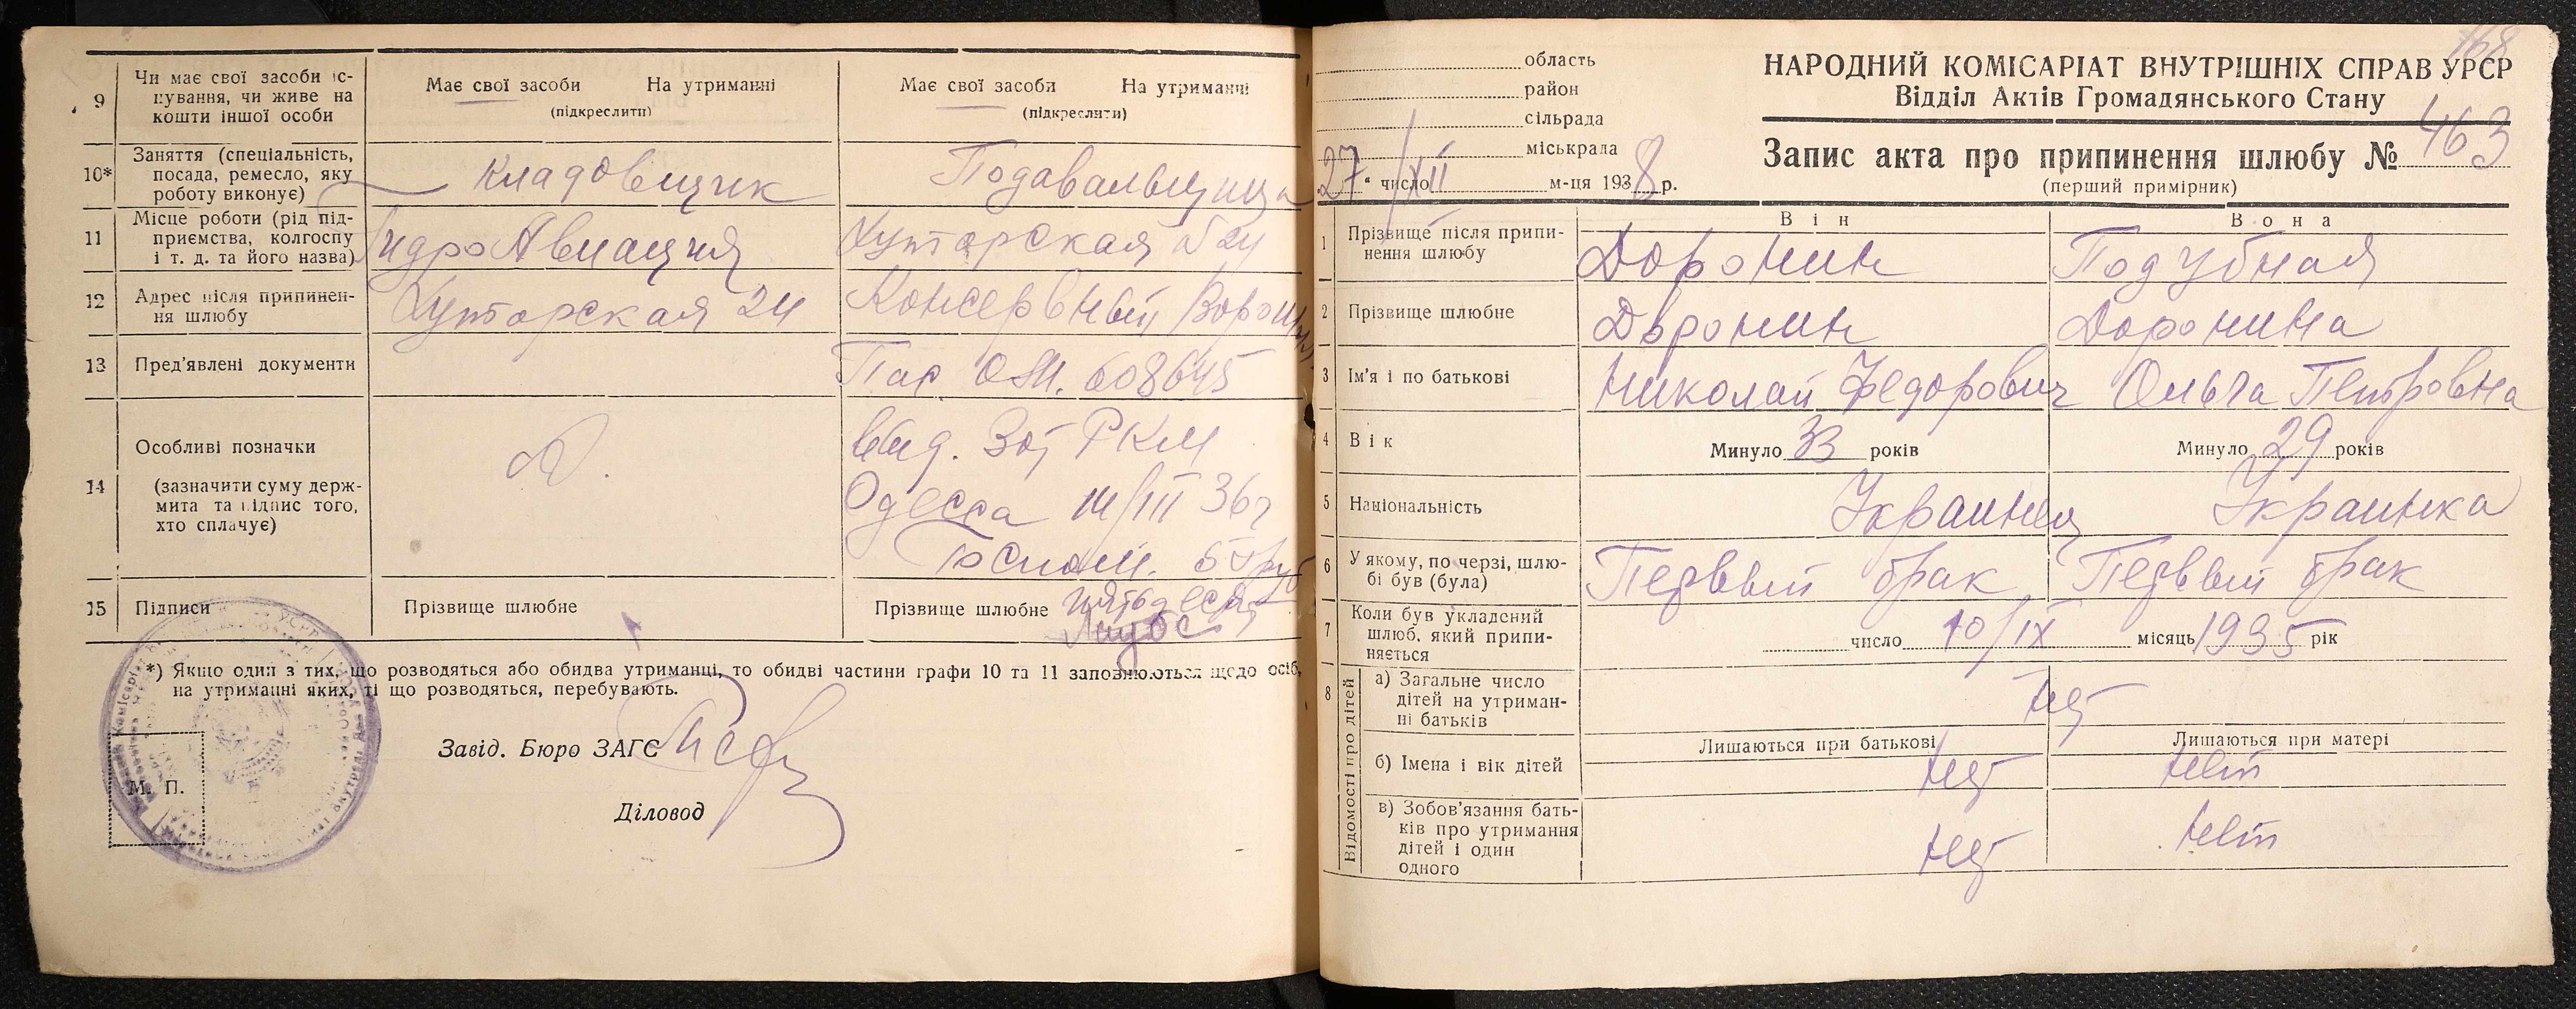 9 Чи має свої засоби іс-
нування, чи живе на
кошти іншої особи
Має свої засоби На утриманні
(підкреслити)
Має свої засоби На утриманні
(підкреслити)
10* Заняття (спеціальність,
посада, ремесло, яку
роботу виконує)
Кладовщик
Подавальщица
11 Місце роботи (рід під-
приємства, колгоспу
і т. д. та його назва)
ГидроАвиация
Хуторская 24
12 Адрес після припинен-
ня шлюбу
Хуторская 24
Консервный
13 Пред'явлені документи
Пас ОЯ. 608645
14 Особливі позначки
(зазначити суму держ-
мита та підпис того,
хто сплачує)
выд. РКМ
Одесса III 36г
Госпом. руб
15 Підписи
Прізвище шлюбне
Прізвище шлюбне
*) Якщо один з тих, що розводяться або обидва утриманці, то обидві частини графи 10 та 11 заповнюються щодо осіб,
на утриманні яких, ті що розводяться, перебувають.
Завід. Бюро ЗАГС
М. П.
Діловод
168
область
район
сільрада
міськрада
„27“ число XII м-ця 1938 р.
НАРОДНИЙ КОМІСАРІАТ ВНУТРІШНІХ СПРАВ УРСР
Відділ Актів Громадянського Стану
Запис акта про припинення шлюбу № 463
(перший примірник)
Він
Вона
1 Прізвище після припи-
нення шлюбу
Доронин
Подубная
2 Прізвище шлюбне
Доронин
Доронина
3 Ім'я і по батькові
Николай Федорович
Ольга Петровна
4 Вік
Минуло 33 років
Минуло 29 років
5 Національність
Украинец
Украинка
6 У якому, по черзі, шлю-
бі був (була)
Первый брак
Первый брак
7 Коли був укладений
шлюб, який припи-
няється
число 10/IX місяць 1935 рік
8 Відомості про дітей
а) Загальне число
дітей на утриман-
ні батьків
нет
Лишаються при батькові
Лишаються при матері
б) Імена і вік дітей
нет
нет
в) Зобов'язання бать-
ків про утримання
дітей і один
одного
нет
нет